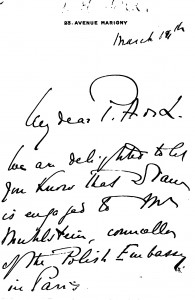 23. AVENUE MARIGNY
March 14th
My dear
We are delighted to let
you know that Diane
is engaged to Mr
Muhlstein, councillor
of the Polish Embassy
in Paris